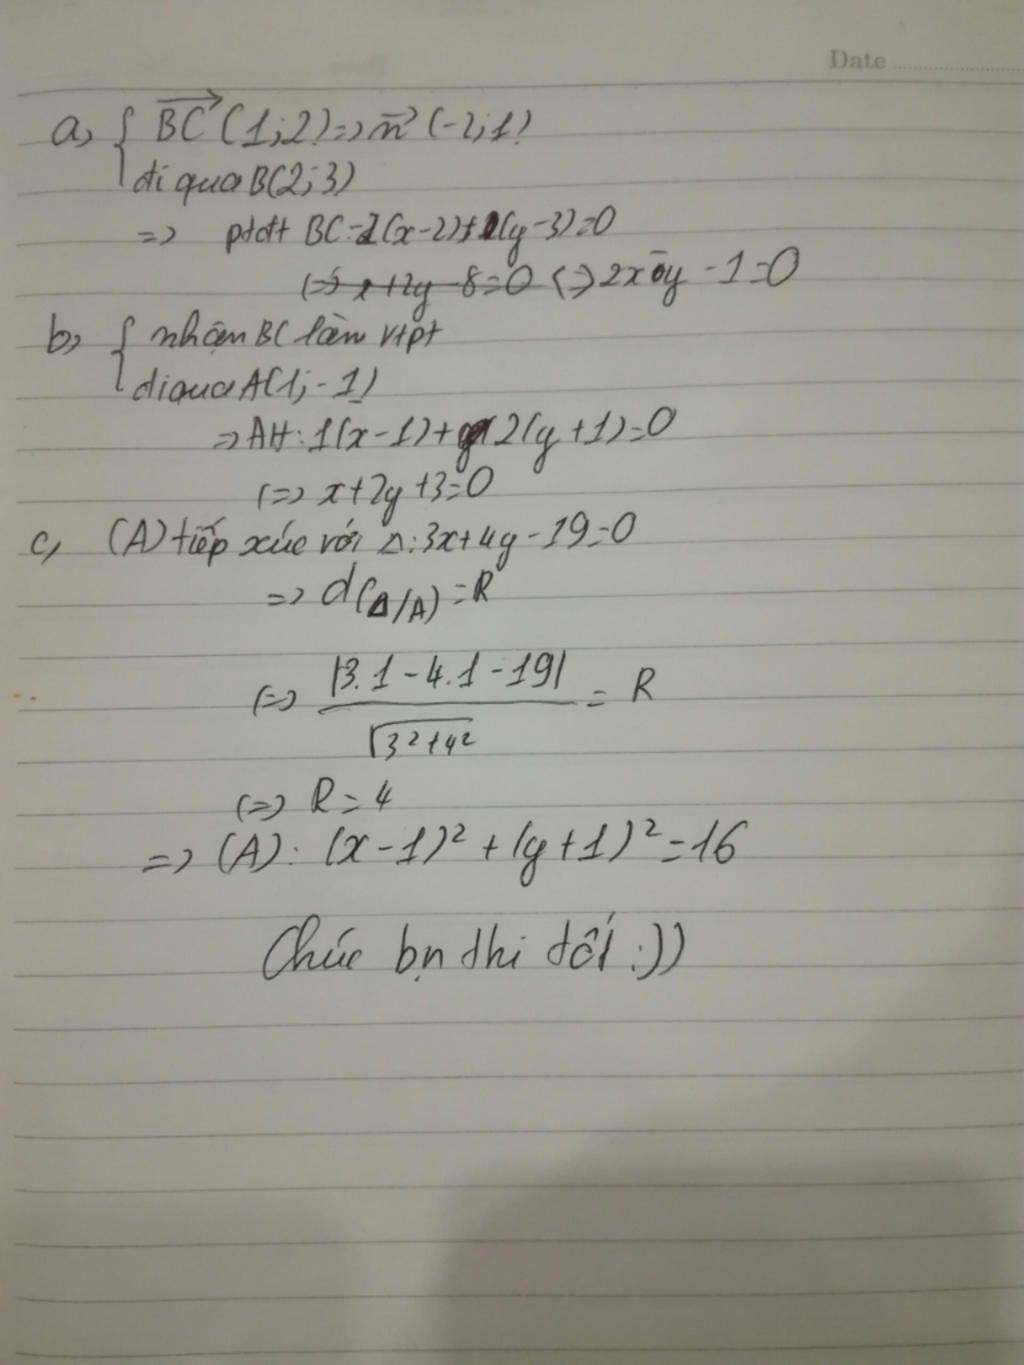 Date
a, { BC→ (1;2) => n→ (-2;1)
đi qua B(2;3)
=> ptđt BC: -2(x-2)+1(y-3)=0
(=> x+2y-8=0 (=> 2x-y-1=0
b, { nhận BC làm vtpt
đi qua A(1;-1)
=> AH: 1(x-1)+2(y+1)=0
(=> x+2y+3=0
c, (A) tiếp xúc với Δ: 3x+4y-19=0
=> d(Δ/A) = R
(=> |3.1-4.1-19| / √3²+4² = R
(=> R=4
=> (A): (x-1)²+(y+1)²=16
Chúc bn thi tốt :))